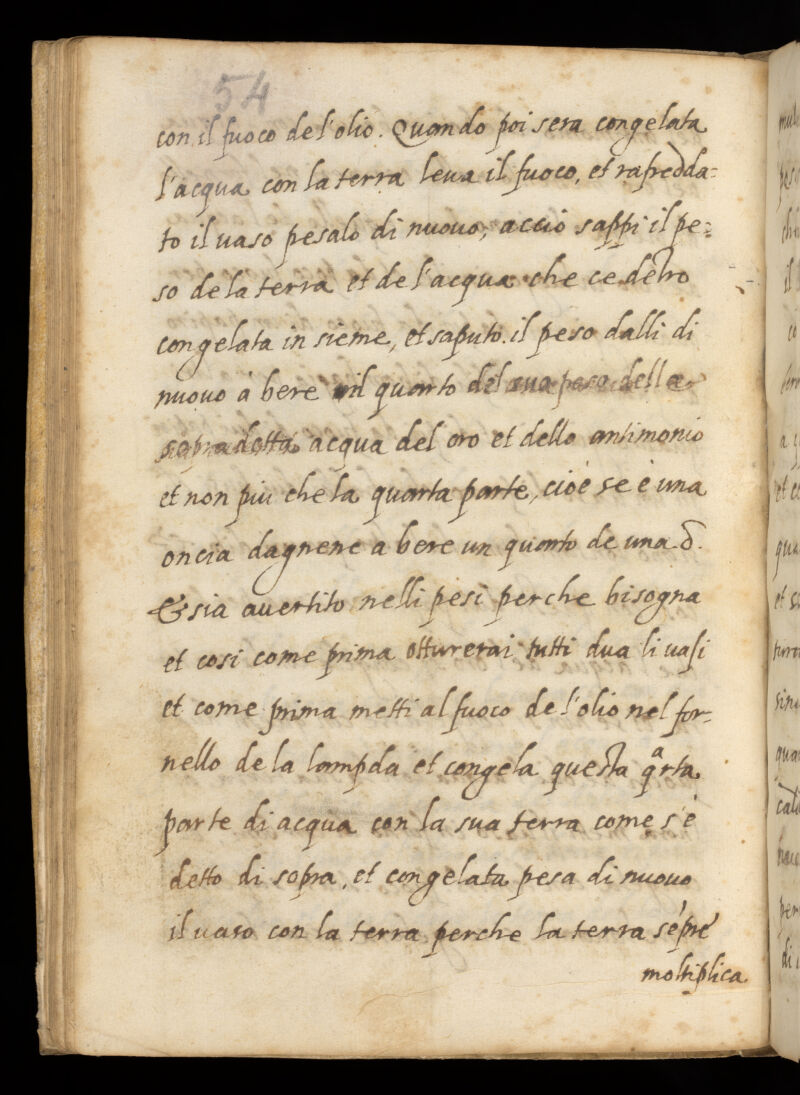 54
con il fuoco de l'olio. Quando poi sera congelata
l'acqua con la terra leua il fuoco, et rafredda=
to il uaso pesalo di nuouo, acciò sappi il pe=
so de la terra et de l'acqua che ce detro
congelata in sieme, et saputo il peso dalli di
nuouo à bere il quarto del suo peso della
sopradetta acqua del oro et dello antimonio
et non piu che la quarta parte, cioè se è una
oncia dagnene a bere un quarto de una
& sia auertito nelli pesi perche bisogna
et cosi come prima otturerai tutti dua li uasi
et come prima metti al fuoco de l'olio nel for-
nello de la lampda et congela questa qarta
parte di acqua con la sua terra come s'è
detto di sopra, et congelata pesa di nuouo
il uaso con la terra perche la terra sépre
moltiplica